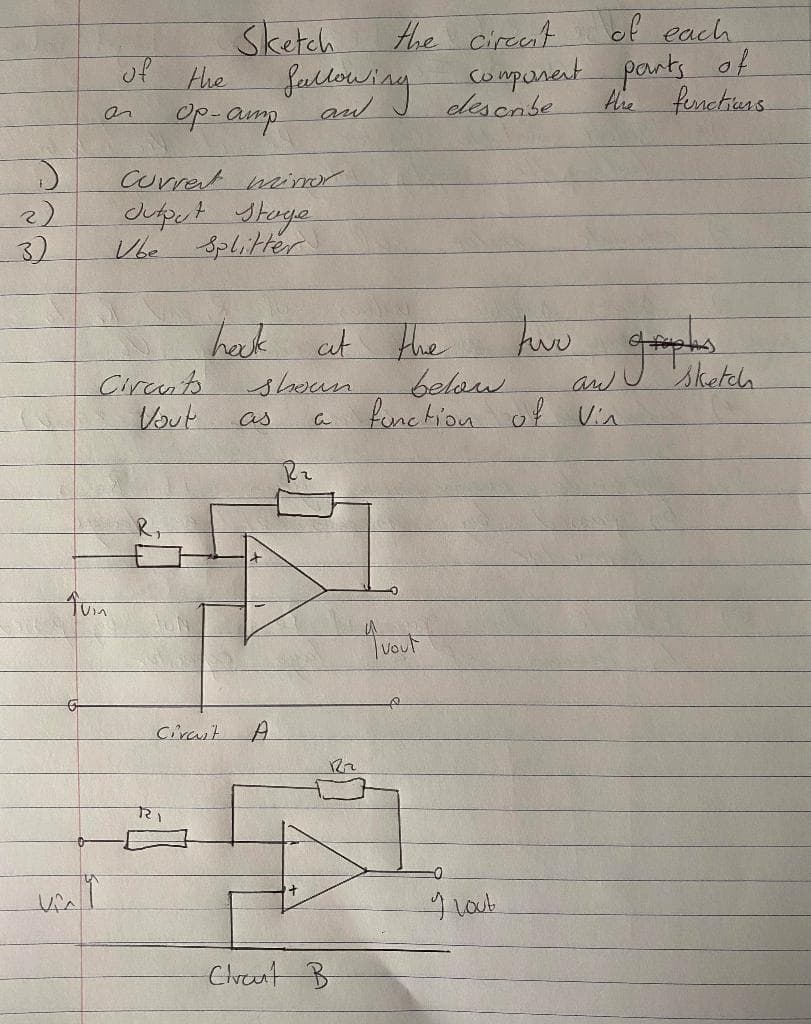 Sketch the circuit of each
of the following component parts of
an op-amp and describe the functions
1) Current mirror
2) Output stage
3) Vbe splitter
Look at the two graphs
Circuits shown below and sketch
Vout as a function of Vin
R2
R1
+
-
Vin
Vout
Circuit A
R2
R1
-
+
Vin
Vout
Circuit B